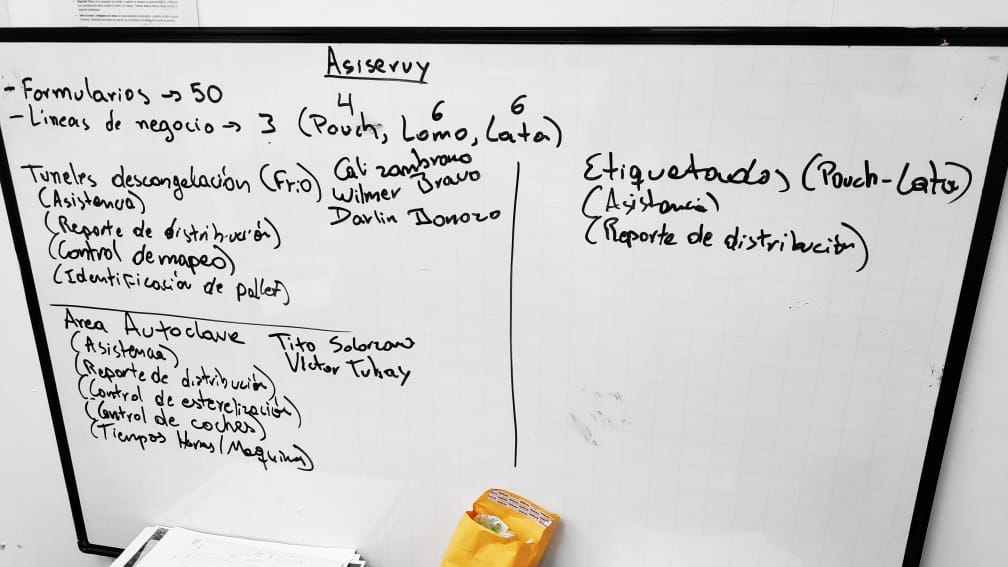 Asiservy
- Formularios → 50
4 6 6
- Lineas de negocio → 3 (Pouch, Lomo, Lata)
Tuneles descongelación (Frio)
(Asistencia)
(Reporte de distribución)
(Control de mapeo)
(Identificación de pallet)
Cali zambrano
Wilmer Bravo
Darlin Donozo
Area Autoclave
(Asistencia)
(Reporte de distribución)
(Control de esterelización)
(Control de coches)
(Tiempos Horas/Maquinas)
Tito Solorzano
Victor Tubay
Etiquetados (Pouch-Lata)
(Asistencia)
(Reporte de distribución)